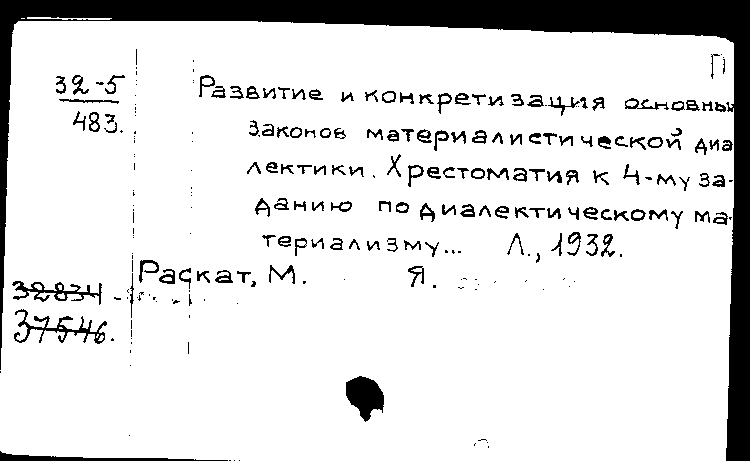 П
32-5
483.
Развитие и конкретизация основны
законов материалистической диа
лектики. Хрестоматия к 4-му за-
данию по диалектическому ма-
териализму... Л., 1932.
Раскат, М. Я.
32834
37546.